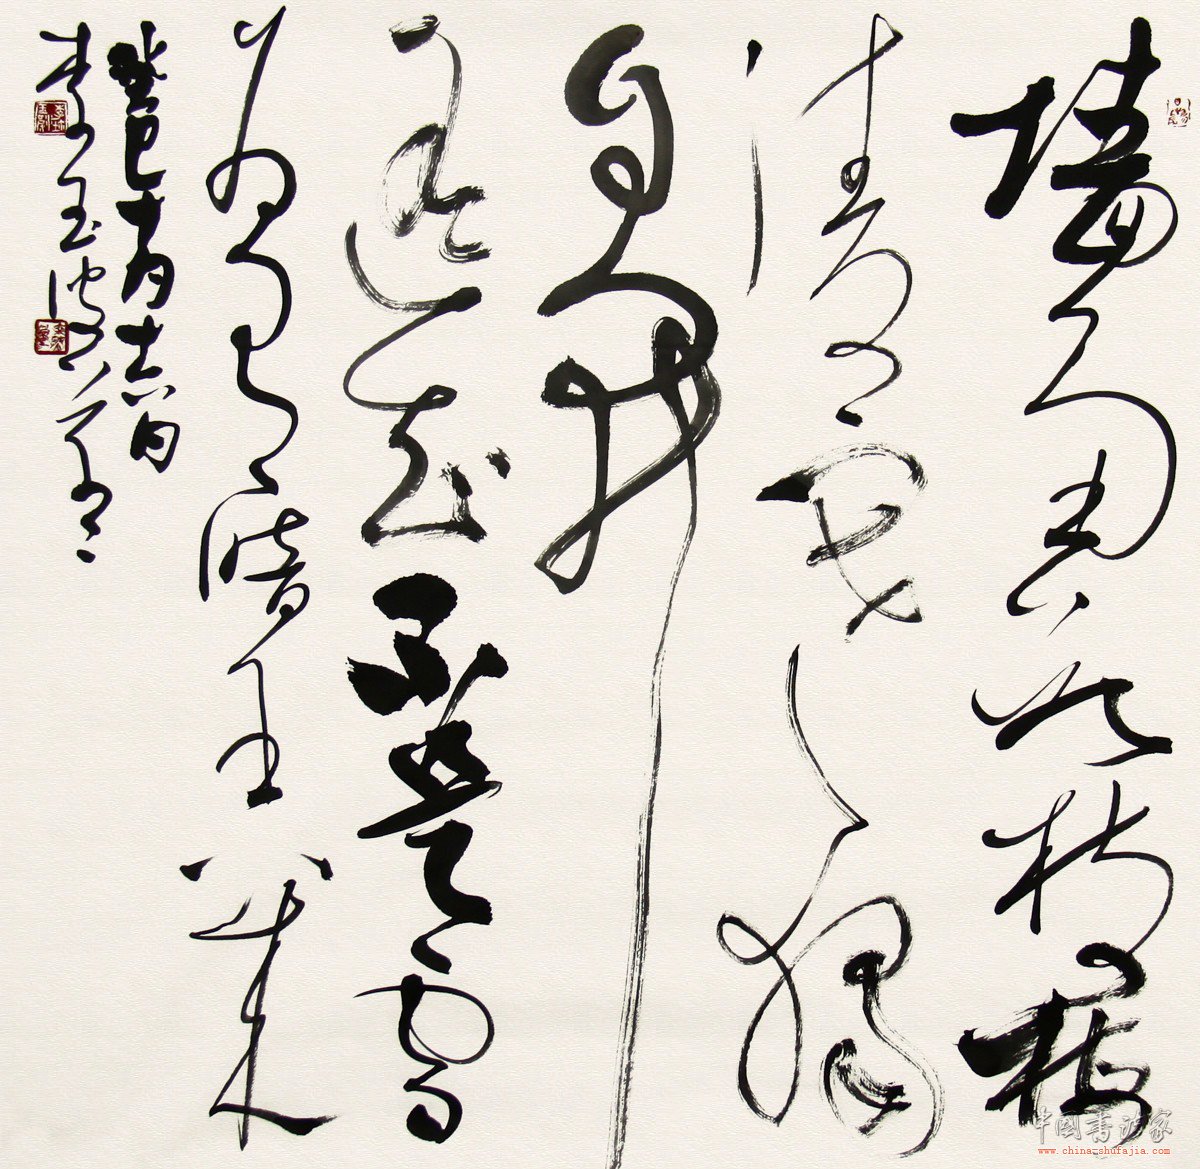 墻角數枝梅
凌寒獨
自開
遥知不是雪
為有暗香来
癸巳
李玉
中国书法家
www.china-shufajia.com